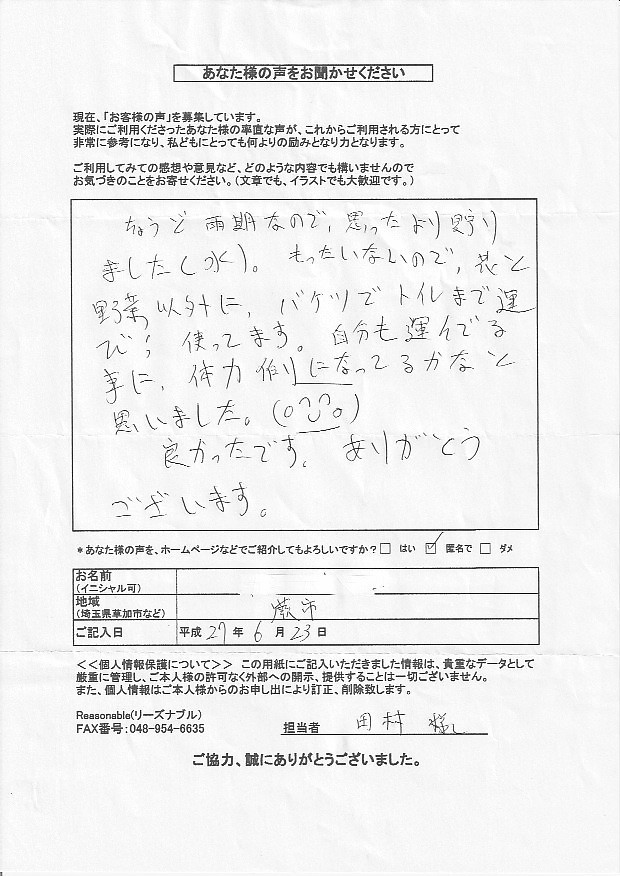 あなた様の声をお聞かせください
現在、「お客様の声」を募集しています。
実際にご利用くださったあなた様の率直な声が、これからご利用される方にとって
非常に参考になり、私どもにとっても何よりの励みとなり力となります。
ご利用してみての感想や意見など、どのような内容でも構いませんので
お気づきのことをお寄せください。(文章でも、イラストでも大歓迎です。)
ちょうど雨期なので、思ったより貯り
ました(水)。もったいないので、花と
野菜以外に、バケツでトイレまで運
び、使ってます。自分も運んでる
事に、体力作りになってるかなと
思いました。(o^∪^o)
良かったです。ありがとう
ございます。
*あなた様の声を、ホームページなどでご紹介してもよろしいですか?□ はい ☑ 匿名で □ ダメ
お名前
(イニシャル可)
地域 蕨市
(埼玉県草加市など)
ご記入日 平成 27 年 6 月 23 日
<<個人情報保護について>> この用紙にご記入いただきました情報は、貴重なデータとして
厳重に管理し、ご本人様の許可なく外部への開示、提供することは一切ございません。
また、個人情報はご本人様からのお申し出により訂正、削除致します。
Reasonable(リーズナブル)
FAX番号:048-954-6635 担当者 田村 様
ご協力、誠にありがとうございました。